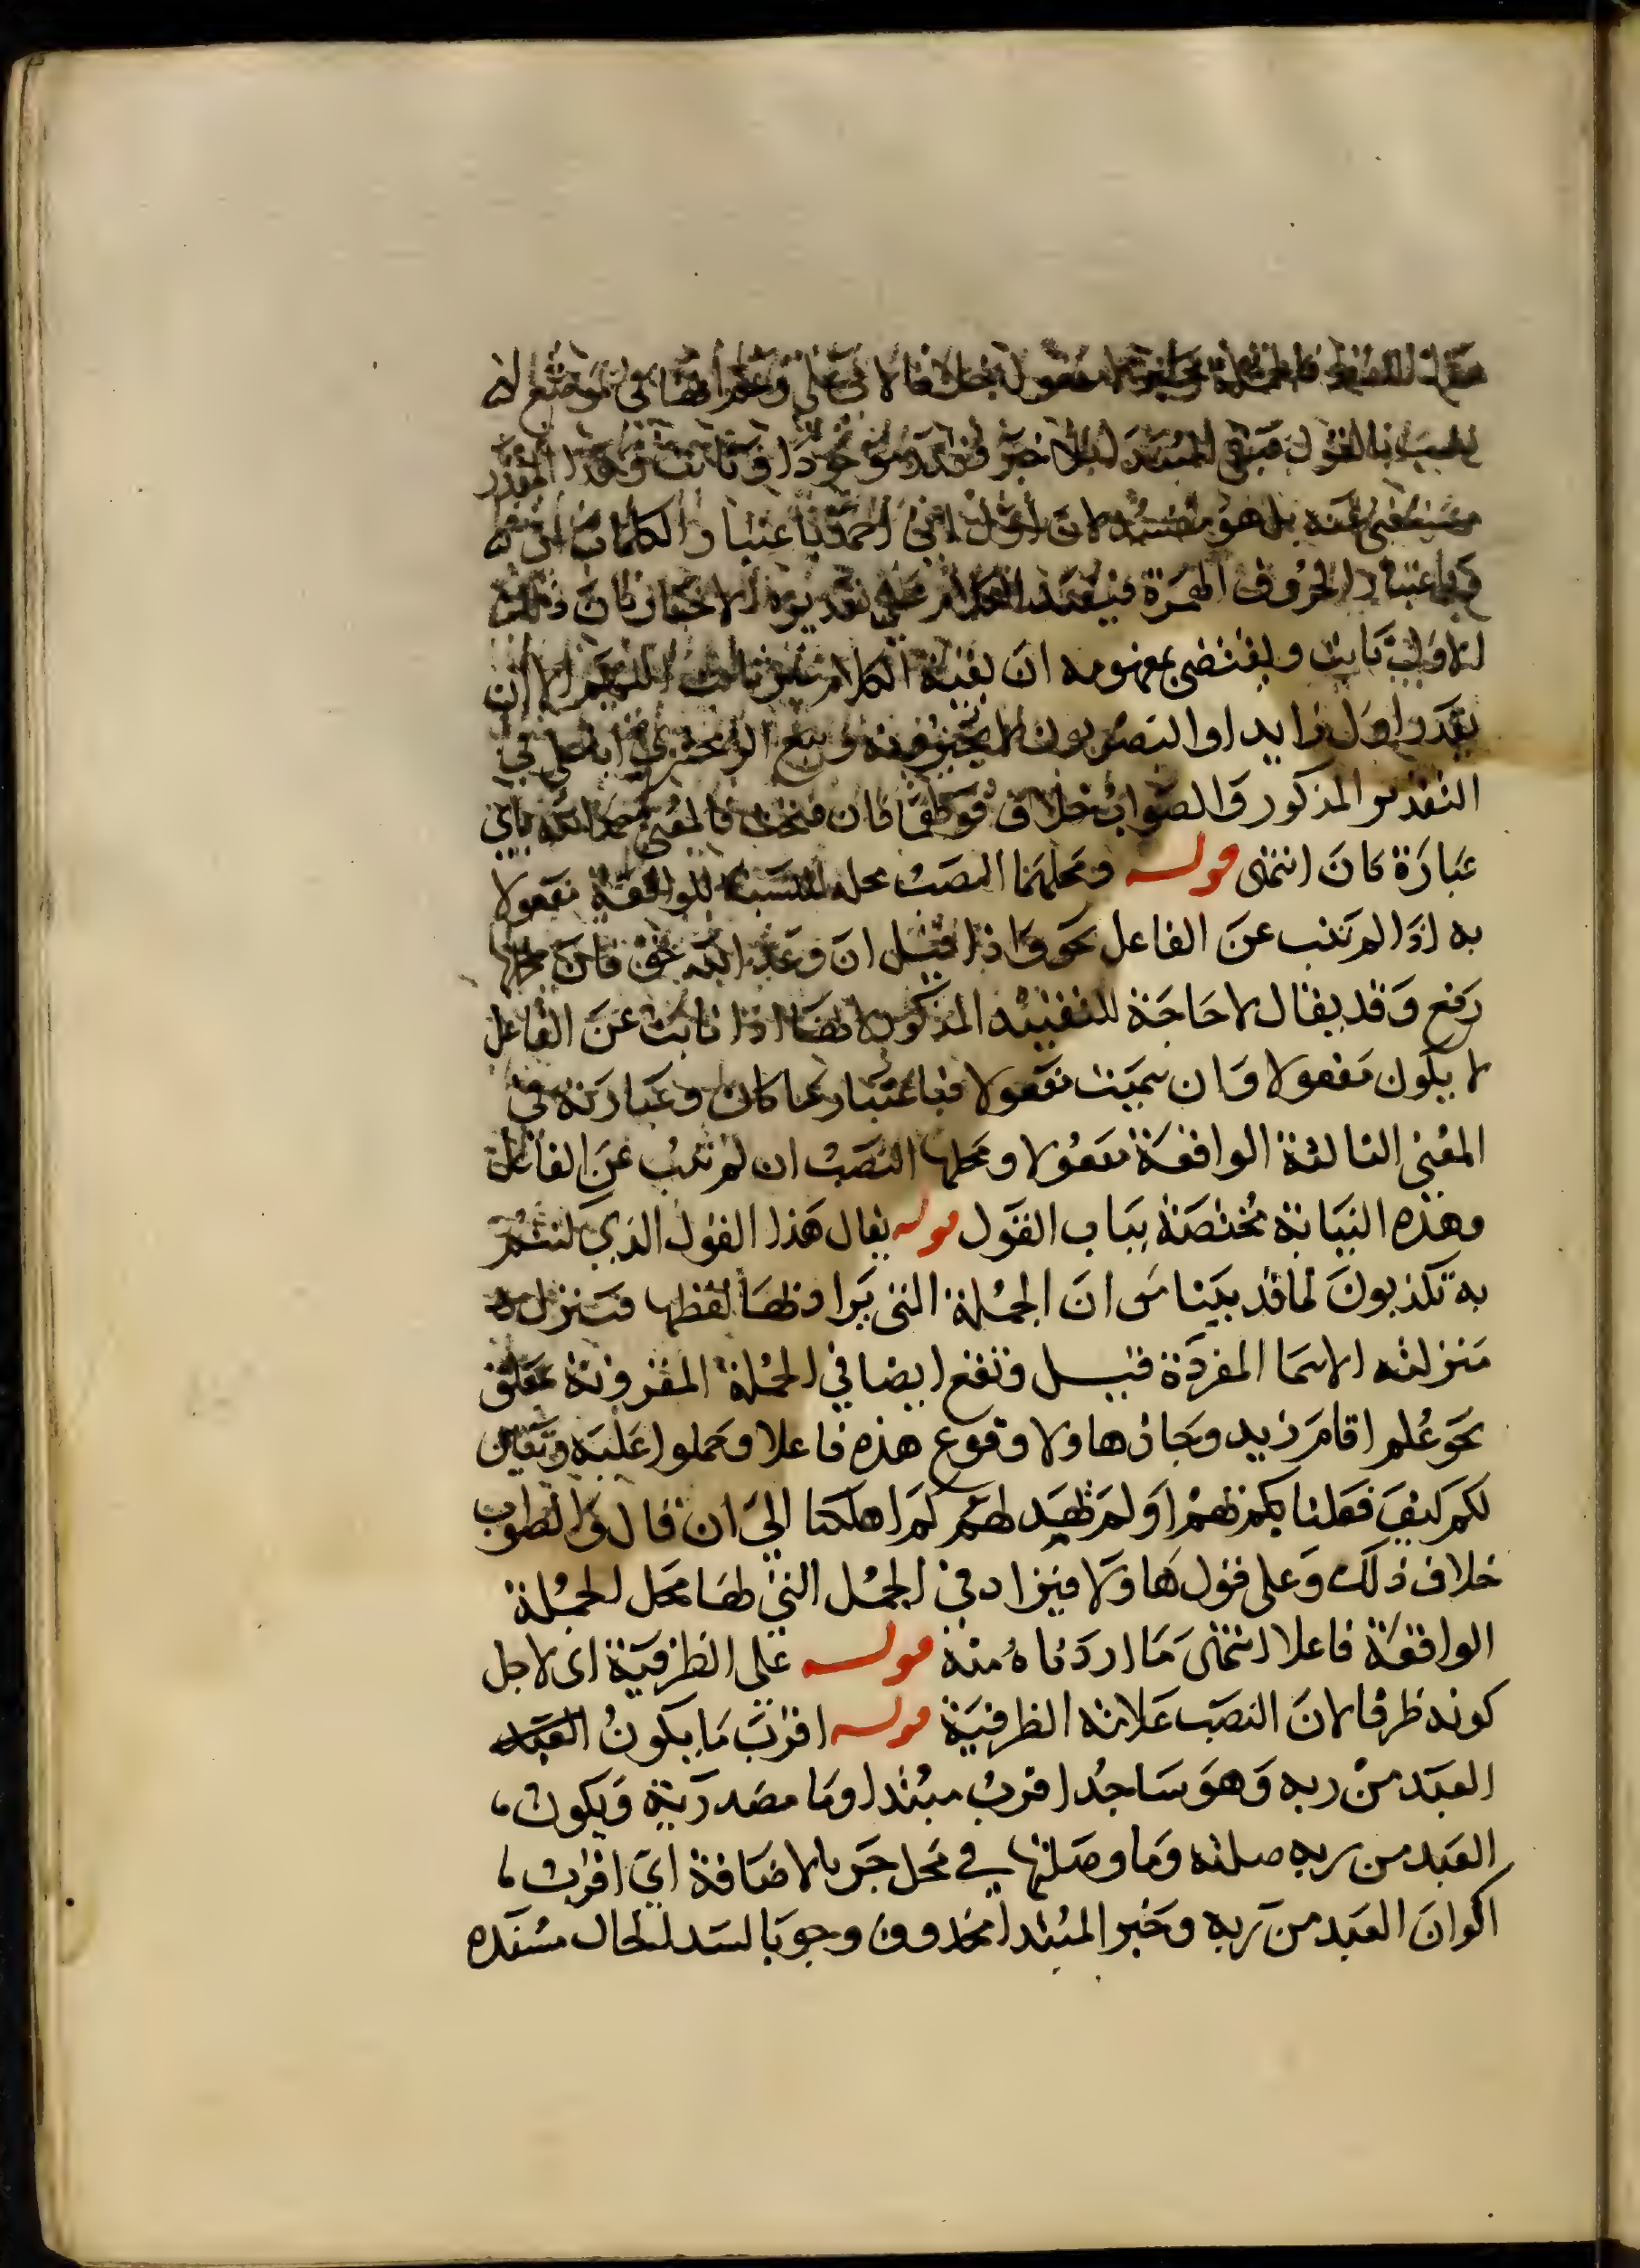 فالجملة خبر لا مفعول خلافا لابي علي وزعم انها في موضع نصب
بالقول فبقي المبتدا بلا خبر فقدر موجودا وثابت وهذا المقدر
يستغنى عنه بل هو مفسد لان اول اني احمد باعتبار الكلمات ان
وباعتبار الحروف الهمزة فيفيد الكلام على تقديره الاخبار بان ذلك
الاول ثابت ويقتضي بمفهومه ان بقية الكلام غير ثابت اللهم الا ان
يقدر اول زايدا والبصريون لا يجيزونه وتبع الزمخشري ابا علي في
التقدير المذكور والصواب خلاف قولهما فان فتحت فالمعنى حمد الله باي
عبارة كان انتهى قوله ومحلهما النصب محله بالنسبة للواقعة مفعولا
به اذا لم تنب عن الفاعل نحو واذا قيل ان وعد الله حق فان محلها
رفع وقد يقال لا حاجة للتقييد المذكور لانها اذا نابت عن الفاعل
لا يكون مفعولا وان سميت مفعولا فباعتبار ما كان وعبارته في
المغني الثالثة الواقعة مفعولا ومحلها النصب ان لم تنب عن الفاعل
وهذه النيابة مختصة بباب القول قوله يقال هذا القول الذي كنتم
به تكذبون لما قد بينا من ان الجملة التي يراد بها لفظها فتنزل
منزلته الاسما المفردة قيل وتقع ايضا في الجملة المقرونة بمعلق
نحو علم اقام زيد وجاز ها ولا وقوع هذه فاعلا وحملوا عليه وتبين
لكم كيف فعلنا بكم بهم اولم يهد لهم كم اهلكنا الى ان قال والصواب
خلاف ذلك وعلى قول ها ولا فيزاد في الجمل التي لها محل الجملة
الواقعة فاعلا انتهى ما اردناه منه قوله على الظرفية اى لاجل
كونه ظرفا لان النصب علامته الظرفية قوله اقرب ما يكون العبد
العبد من ربه وهو ساجد اقرب مبتدا وما مصدرية ويكون
العبد من ربه صلته وما وصلتها في محل جر بالاضافة اي اقرب
اكوان العبد من ربه وخبر المبتدا محذوف وجوبا لسد الحال مسده